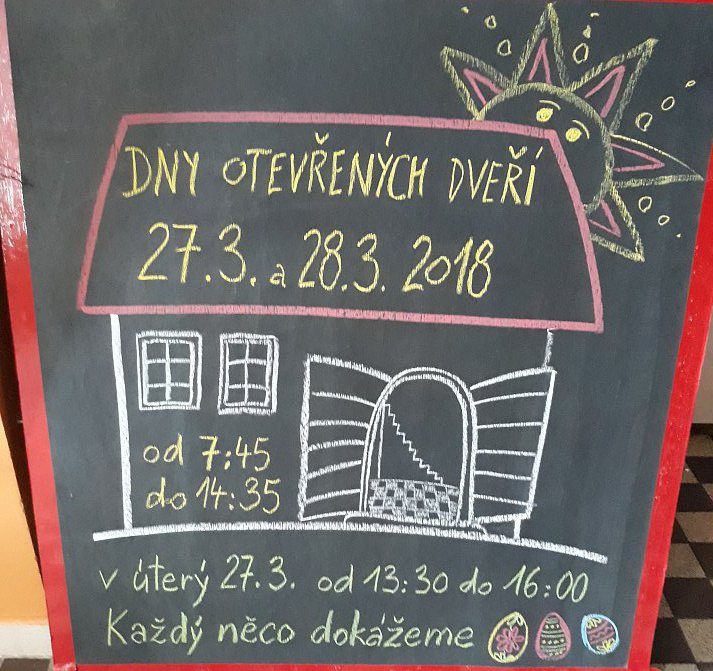 DNY OTEVŘENÝCH DVEŘÍ
27.3. a 28.3. 2018
od 7:45
do 14:35
v úterý 27.3. od 13:30 do 16:00
Každý něco dokážeme